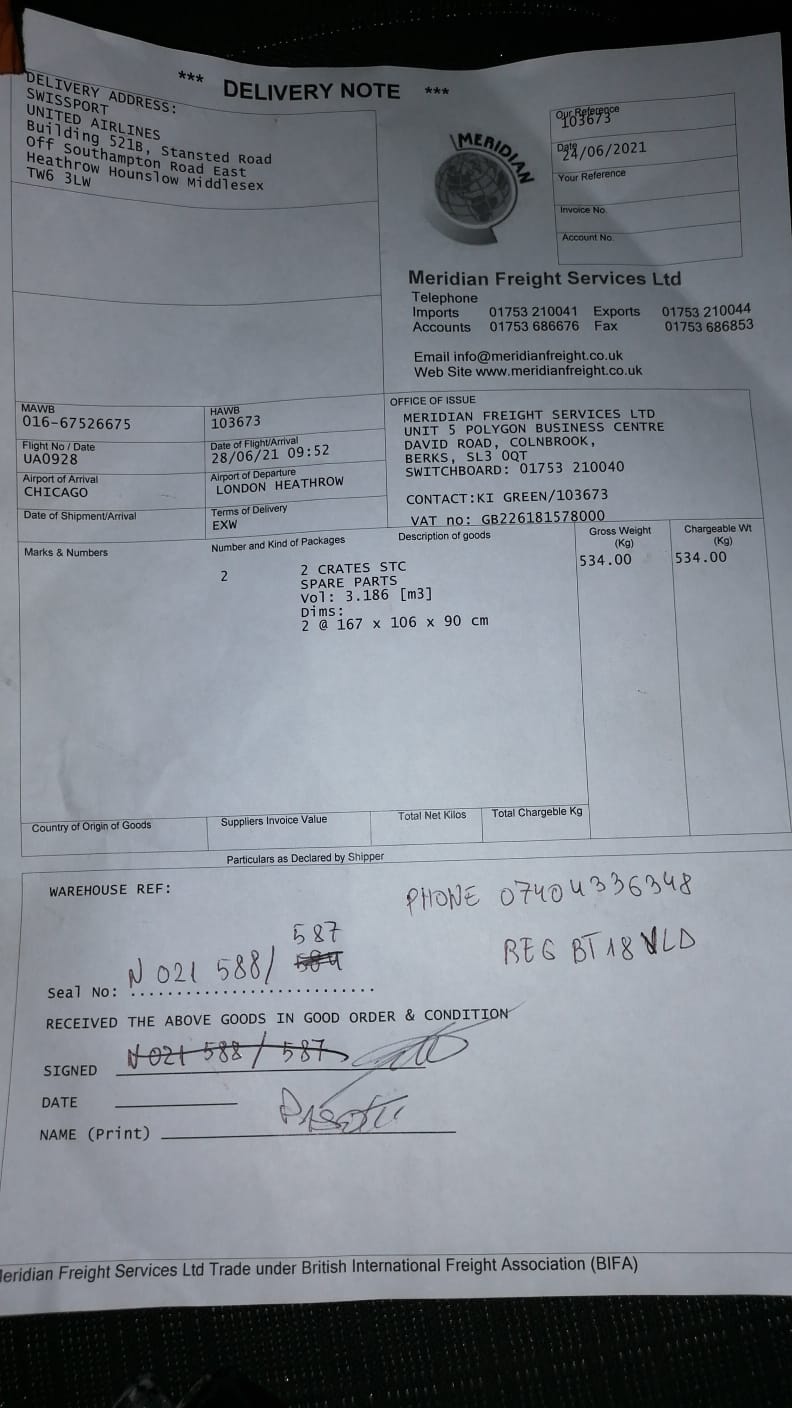 *** DELIVERY NOTE ***
DELIVERY ADDRESS:
SWISSPORT
UNITED AIRLINES
Building 521B, Stansted Road
Off Southampton Road East
Heathrow Hounslow Middlesex
TW6 3LW
MERIDIAN
Our Reference
103673
Date
24/06/2021
Your Reference
Invoice No.
Account No.
Meridian Freight Services Ltd
Telephone
Imports 01753 210041 Exports 01753 210044
Accounts 01753 686676 Fax 01753 686853
Email info@meridianfreight.co.uk
Web Site www.meridianfreight.co.uk
MAWB
016-67526675
HAWB
103673
Flight No / Date
UA0928
Date of Flight/Arrival
28/06/21 09:52
Airport of Arrival
CHICAGO
Airport of Departure
LONDON HEATHROW
Date of Shipment/Arrival
Terms of Delivery
EXW
OFFICE OF ISSUE
MERIDIAN FREIGHT SERVICES LTD
UNIT 5 POLYGON BUSINESS CENTRE
DAVID ROAD, COLNBROOK,
BERKS, SL3 0QT
SWITCHBOARD: 01753 210040
CONTACT:KI GREEN/103673
VAT no: GB226181578000
Marks & Numbers
Number and Kind of Packages
Description of goods
Gross Weight
(Kg)
Chargeable Wt
(Kg)
2
2 CRATES STC
SPARE PARTS
Vol: 3.186 [m3]
Dims:
2 @ 167 x 106 x 90 cm
534.00
534.00
Country of Origin of Goods
Suppliers Invoice Value
Total Net Kilos
Total Chargeble Kg
Particulars as Declared by Shipper
WAREHOUSE REF:
PHONE 07404336348
REG BT18 VLD
587
Seal No: N 021 588/ 584
RECEIVED THE ABOVE GOODS IN GOOD ORDER & CONDITION
SIGNED N 021 588 / 587
DATE
NAME (Print)
Meridian Freight Services Ltd Trade under British International Freight Association (BIFA)